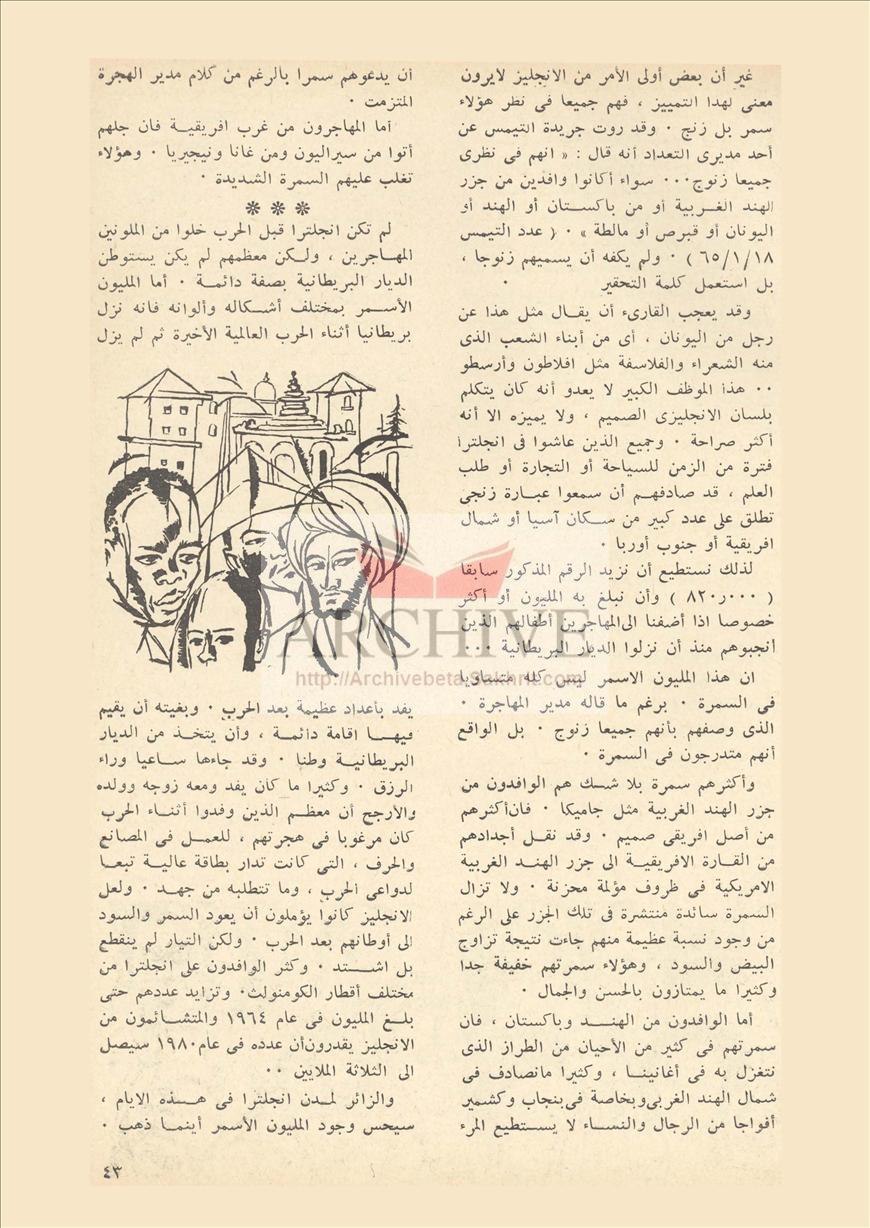 غير أن بعض أولى الأمر من الانجليز لايرون
معنى لهذا التمييز ، فهم جميعا فى نظر هؤلاء
سمر بل زنج ٠ وقد روت جريدة التيمس عن
أحد مديرى التعداد أنه قال : « انهم فى نظرى
جميعا زنوج٠٠٠ سواء أكانوا وافدين من جزر
الهند الغـربية أو من باكستان أو الهند أو
اليونان أو قبرص أو مالطة » ٠ ( عدد التيمس
٦٥/١/١٨ ) ٠ ولم يكفه أن يسميهم زنوجا ،
بل استعمل كلمة التحقير ٠
وقد يعجب القارىء أن يقـال مثل هذا عن
رجل من اليونان ، أى من أبناء الشعب الذى
منه الشعراء والفلاسفة مثل افلاطون وأرسطو
٠٠ هذا الموظف الكبير لا يعدو أنه كان يتكلم
بلسان الانجليزى الصميم ، ولا يميزه الا أنه
أكثر صراحة ٠ وجميع الذين عاشوا فى انجلترا
فترة من الزمن للسياحة أو التجارة أو طلب
العلم ، قد صادفهـم أن سمعوا عبـارة زنجى
تطلق على عدد كبير من سـكان آسيا أو شمال
افريقية أو جنوب أوربا ٠
لذلك نستطيع أن نزيد الرقم المذكور سابقا
( ٨٢٠ر٠٠٠ ) وأن نبلغ به المليون أو أكثر
خصوصا اذا أضفنا الى المهاجرين أطفالهم الذين
أنجبوهم منذ أن نزلوا الديار البريطانية ٠٠٠
ان هذا المليون الاسمر ليس كله متساويا
فى السمرة ٠ برغم ما قاله مدير المهاجرة ٠
الذى وصفهم بأنهم جميعا زنوج ٠ بل الواقع
أنهم متدرجون فى السمرة ٠
وأكثرهم سمرة بلا شـك هم الوافدون من
جزر الهند الغربية مثل جاميكا ٠ فان أكثرهم
من أصل افريقى صميم ٠ وقد نقـل أجدادهم
من القـارة الافريقيـة الى جزر الهنـد الغربية
الامريكية فى ظروف مؤلمة محزنة ٠ ولا تزال
السمرة سائدة منتشرة فى تلك الجزر على الرغم
من وجود نسبة عظيمة منهم جاءت نتيجة تزاوج
البيض والسود ، وهؤلاء سمرتهم خفيفة جدا
وكثيرا ما يمتازون بالحسن والجمال ٠
أما الوافدون من الهنـد وباكستان ، فان
سمرتهم فى كثير من الأحيان من الطراز الذى
نتغزل به فى أغانينـا ، وكثيرا مانصادف فى
شمال الهند الغربى وبخاصة فى بنجاب وكشمير
أفواجا من الرجال والنسـاء لا يسـتطيع المرء
أن يدعوهم سمرا بالرغم من كلام مدير الهجرة
المتزمت ٠
أما المهاجرون من غرب افريقيـة فان جلهم
أتوا من سيراليون ومن غانا ونيجيريا ٠ وهؤلاء
تغلب عليهم السمرة الشديدة ٠
***
لم تكن انجلترا قبل الحرب خلوا من الملونين
المهـاجرين ، ولـكن معظمهم لم يكن يستوطن
الديار البريطانية بصفة دائمـة ٠ أما المليون
الأسـمر بمختلف أشـكاله وألوانه فانه نزل
بريطانيا أثناء الحرب العالمية الأخيرة ثم لم يزل
يفد بأعداد عظيمة بعد الحرب ٠ وبغيته أن يقيم
فيهـا اقامة دائمـة ، وأن يتخـذ من الديار
البريطانيـة وطنا ٠ وقد جاءها سـاعيا وراء
الرزق ٠ وكثيرا ما كان يفد ومعه زوجه وولده
والأرجح أن معظـم الذين وفدوا أثنـاء الحرب
كان مرغوبا فى هجرتهم ، للعمـل فى المصانع
والحرف ، التى كانت تدار بطاقة عاليـة تبعـا
لدواعى الحرب ، وما تتطلبه من جهـد ٠ ولعل
الانجليز كانوا يؤملون أن يعود السمر والسود
الى أوطانهم بعد الحرب ٠ ولكن التيار لم ينقطع
بل اشـتد ٠ وكثر الوافدون على انجلترا من
مختلف أقطار الكومنولث٠ وتزايد عددهم حتى
بلـغ المليون فى عام ١٩٦٤ والمتشـائمون من
الانجليز يقدرون أن عدده فى عام ١٩٨٠ سيصل
الى الثلاثة الملايين ٠٠
والزائر لمـدن انجلترا فى هـذه الايام ،
سيحس وجود المليون الأسمر أينمـا ذهب ٠
ARCHIVE
http://Archivebeta.Sakhrit.com
٤٣